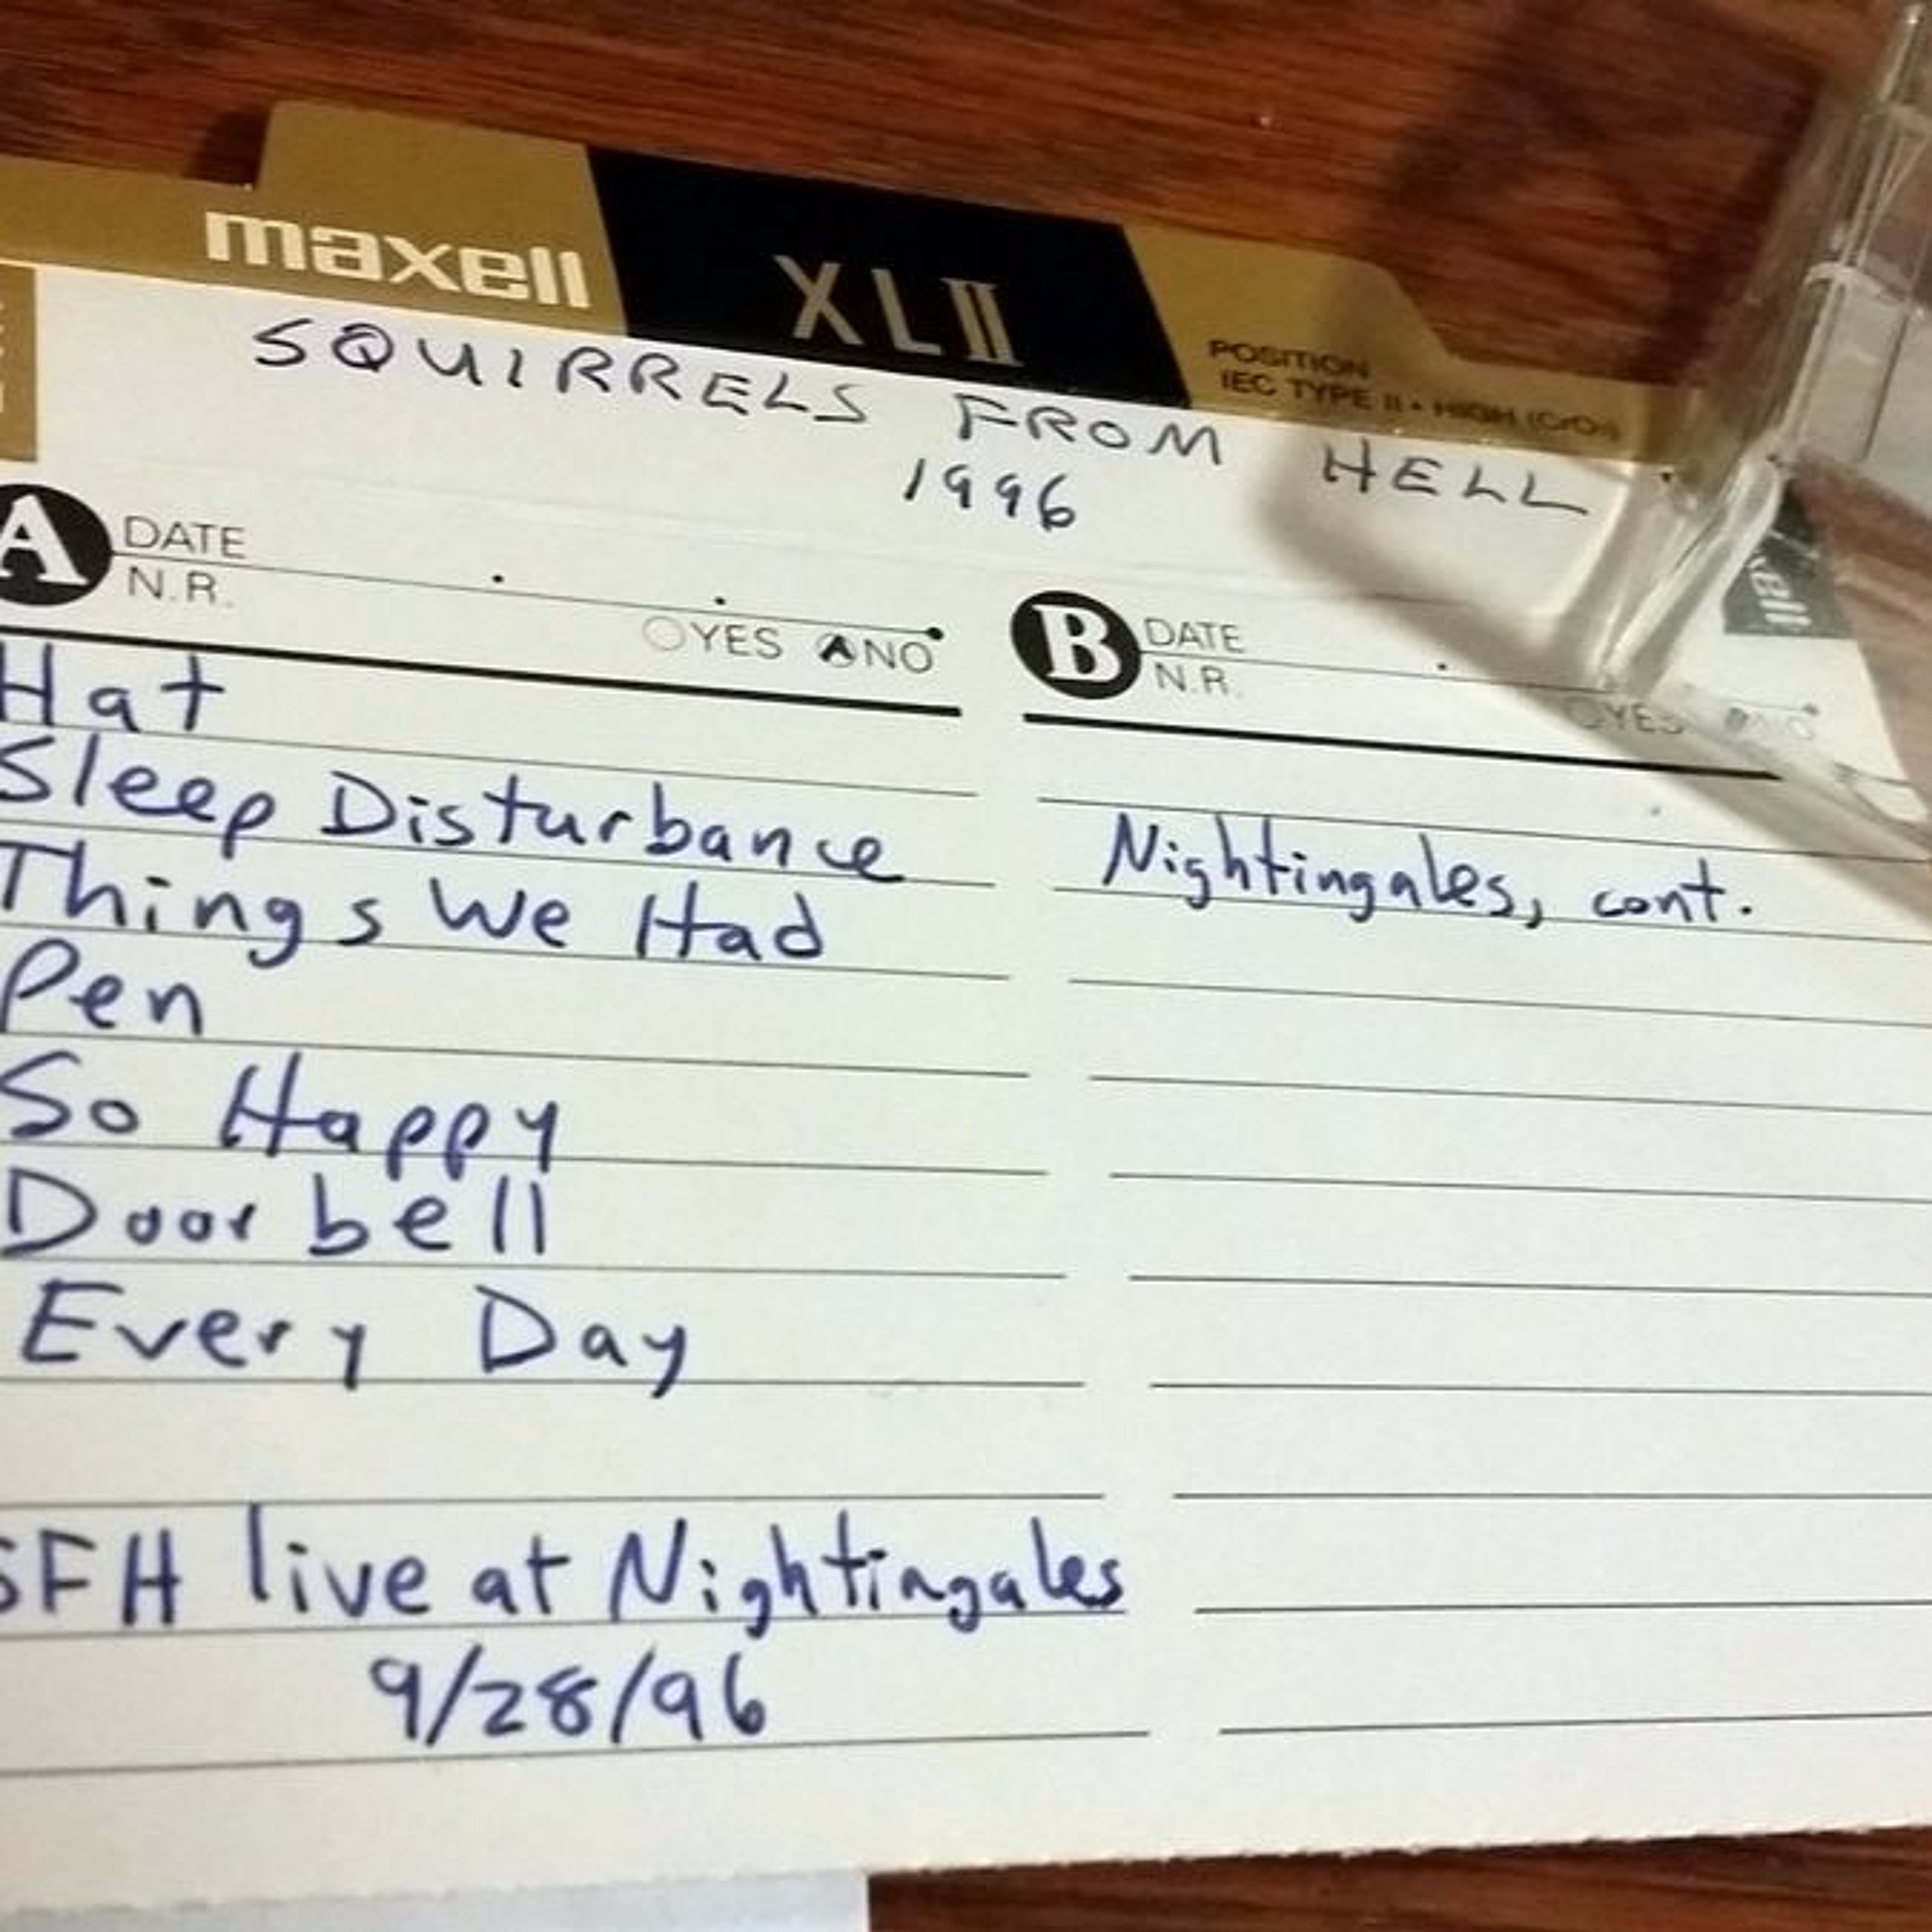 maxell XLII POSITION
IEC TYPE II • HIGH (CrO₂)
SQUIRRELS FROM HELL
1996
A DATE
N.R. YES NO
Hat
Sleep Disturbance
Things We Had
Pen
So Happy
Doorbell
Every Day
SFH live at Nightingales
9/28/96
B DATE
N.R. YES NO
Nightingales, cont.